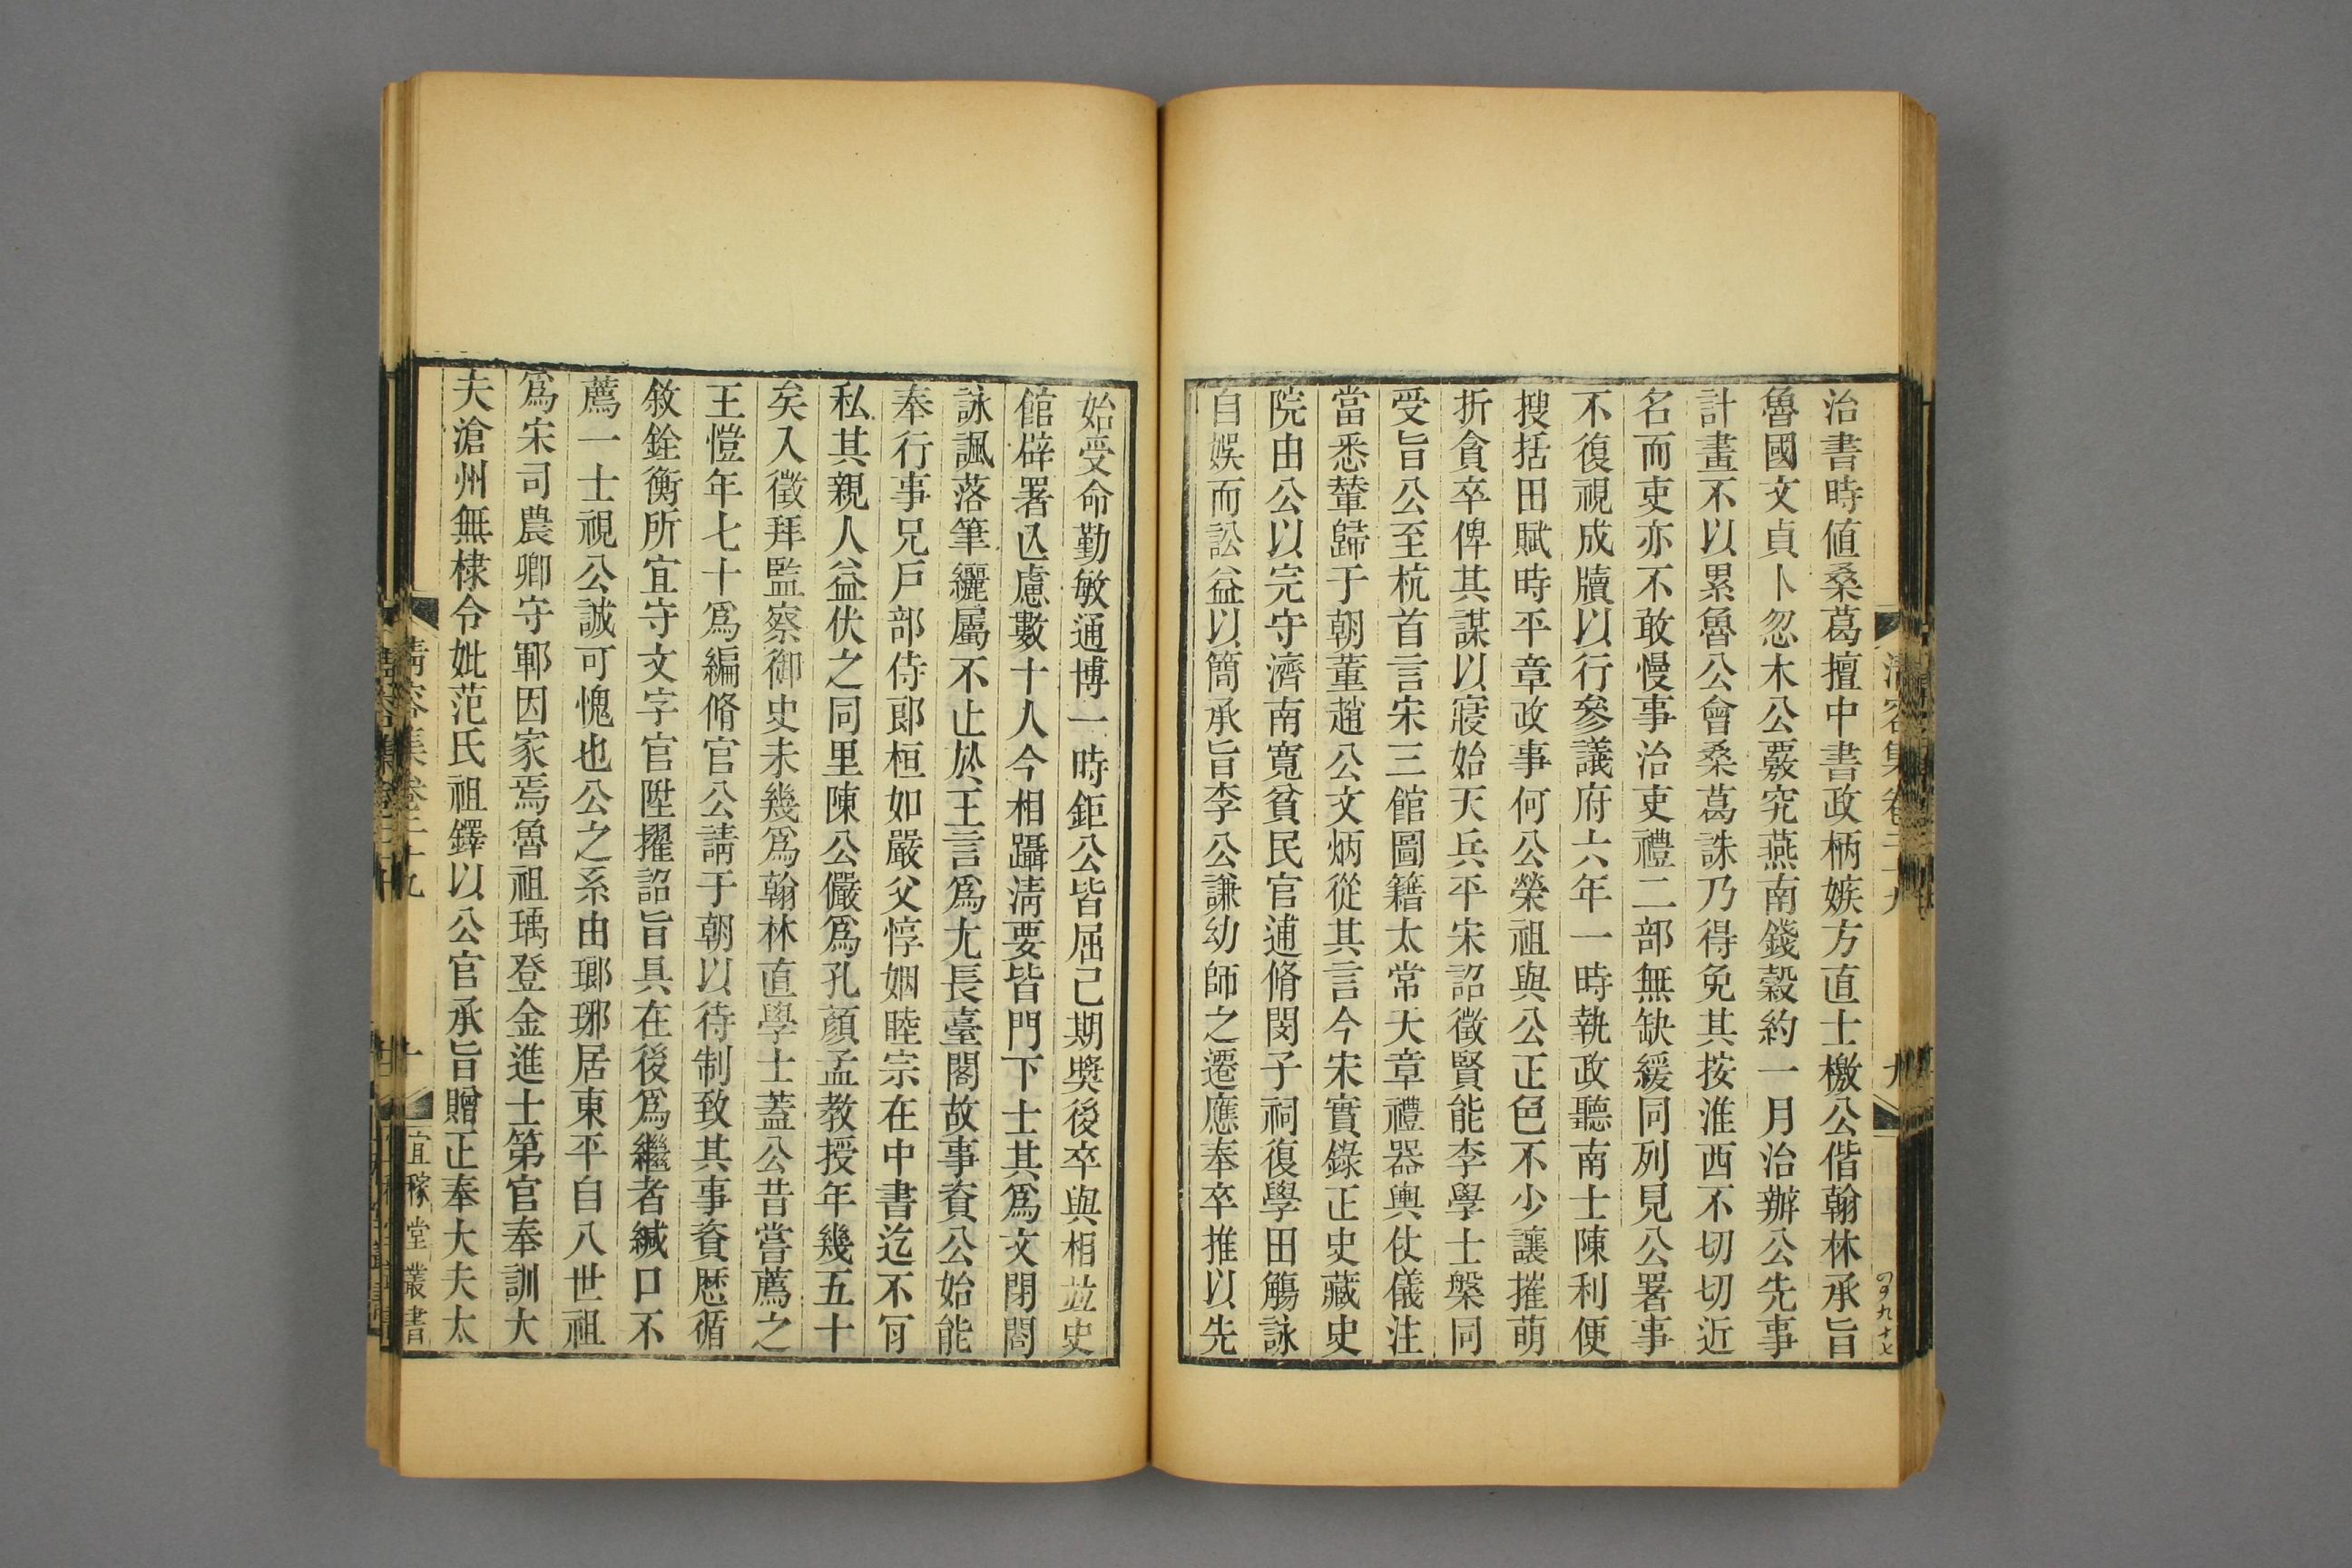 清容集卷二十九
九
治書時値桑葛擅中書政柄嫉方直士檄公偕翰林承旨
魯國文貞卜忽木公覈究燕南錢穀約一月治辦公先事
計畫不以累魯公會桑葛誅乃得免其按淮西不切切近
名而吏亦不敢慢事治吏禮二部無缺緩同列見公署事
不復視成牘以行參議府六年一時執政聽南士陳利便
搜括田賦時平章政事何公榮祖與公正色不少讓摧萌
折貪卒俾其謀以寢始天兵平宋詔徵賢能李學士槃同
受旨公至杭首言宋三館圖籍太常天章禮器輿仗儀注
當悉輦歸于朝董趙公文炳從其言今宋實錄正史藏史
院由公以完守濟南寬貧民官逋脩閔子祠復學田觴詠
自娛而訟益以簡承旨李公謙幼師之遷應奉卒推以先
始受命勤敏通博一時鉅公皆屈己期奬後卒與相竝史
館辟署凡慮數十人今相躡淸要皆門下士其爲文閉閤
詠諷落筆纚屬不止於王言爲尤長臺閣故事資公始能
奉行事兄戶部侍郎桓如嚴父惇姻睦宗在中書迄不肎
私其親人益伏之同里陳公儼爲孔顔孟教授年幾五十
矣入徵拜監察御史未幾爲翰林直學士蓋公昔嘗薦之
王愷年七十爲編脩官公請于朝以待制致其事資歷循
敘銓衡所宜守文字官陞擢詔旨具在後爲繼者緘口不
薦一士視公誠可愧也公之系由瑯琊居東平自八世祖
爲宋司農卿守鄆因家焉魯祖瑀登金進士第官奉訓大
夫滄州無棣令妣范氏祖鐸以公官承旨贈正奉大夫太
清容集卷二十九
十
宜稼堂叢書